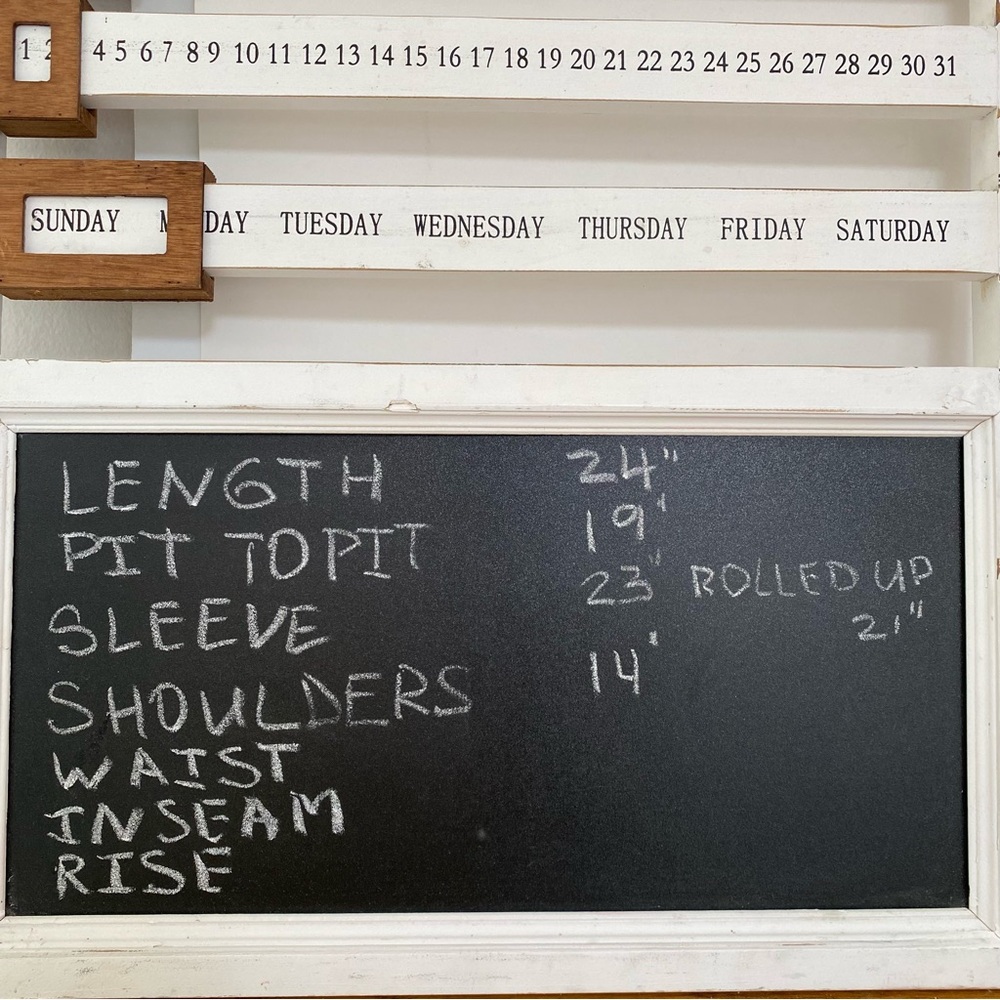 1 2 4 5 6 7 8 9 10 11 12 13 14 15 16 17 18 19 20 21 22 23 24 25 26 27 28 29 30 31
SUNDAY M DAY TUESDAY WEDNESDAY THURSDAY FRIDAY SATURDAY
LENGTH 24"
PIT TO PIT 19'
SLEEVE 23" ROLLED UP
21"
SHOULDERS 14'
WAIST
INSEAM
RISE